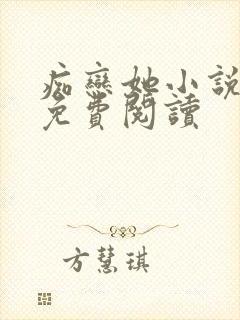 痴戀她小說
免費閱讀
方慧琪